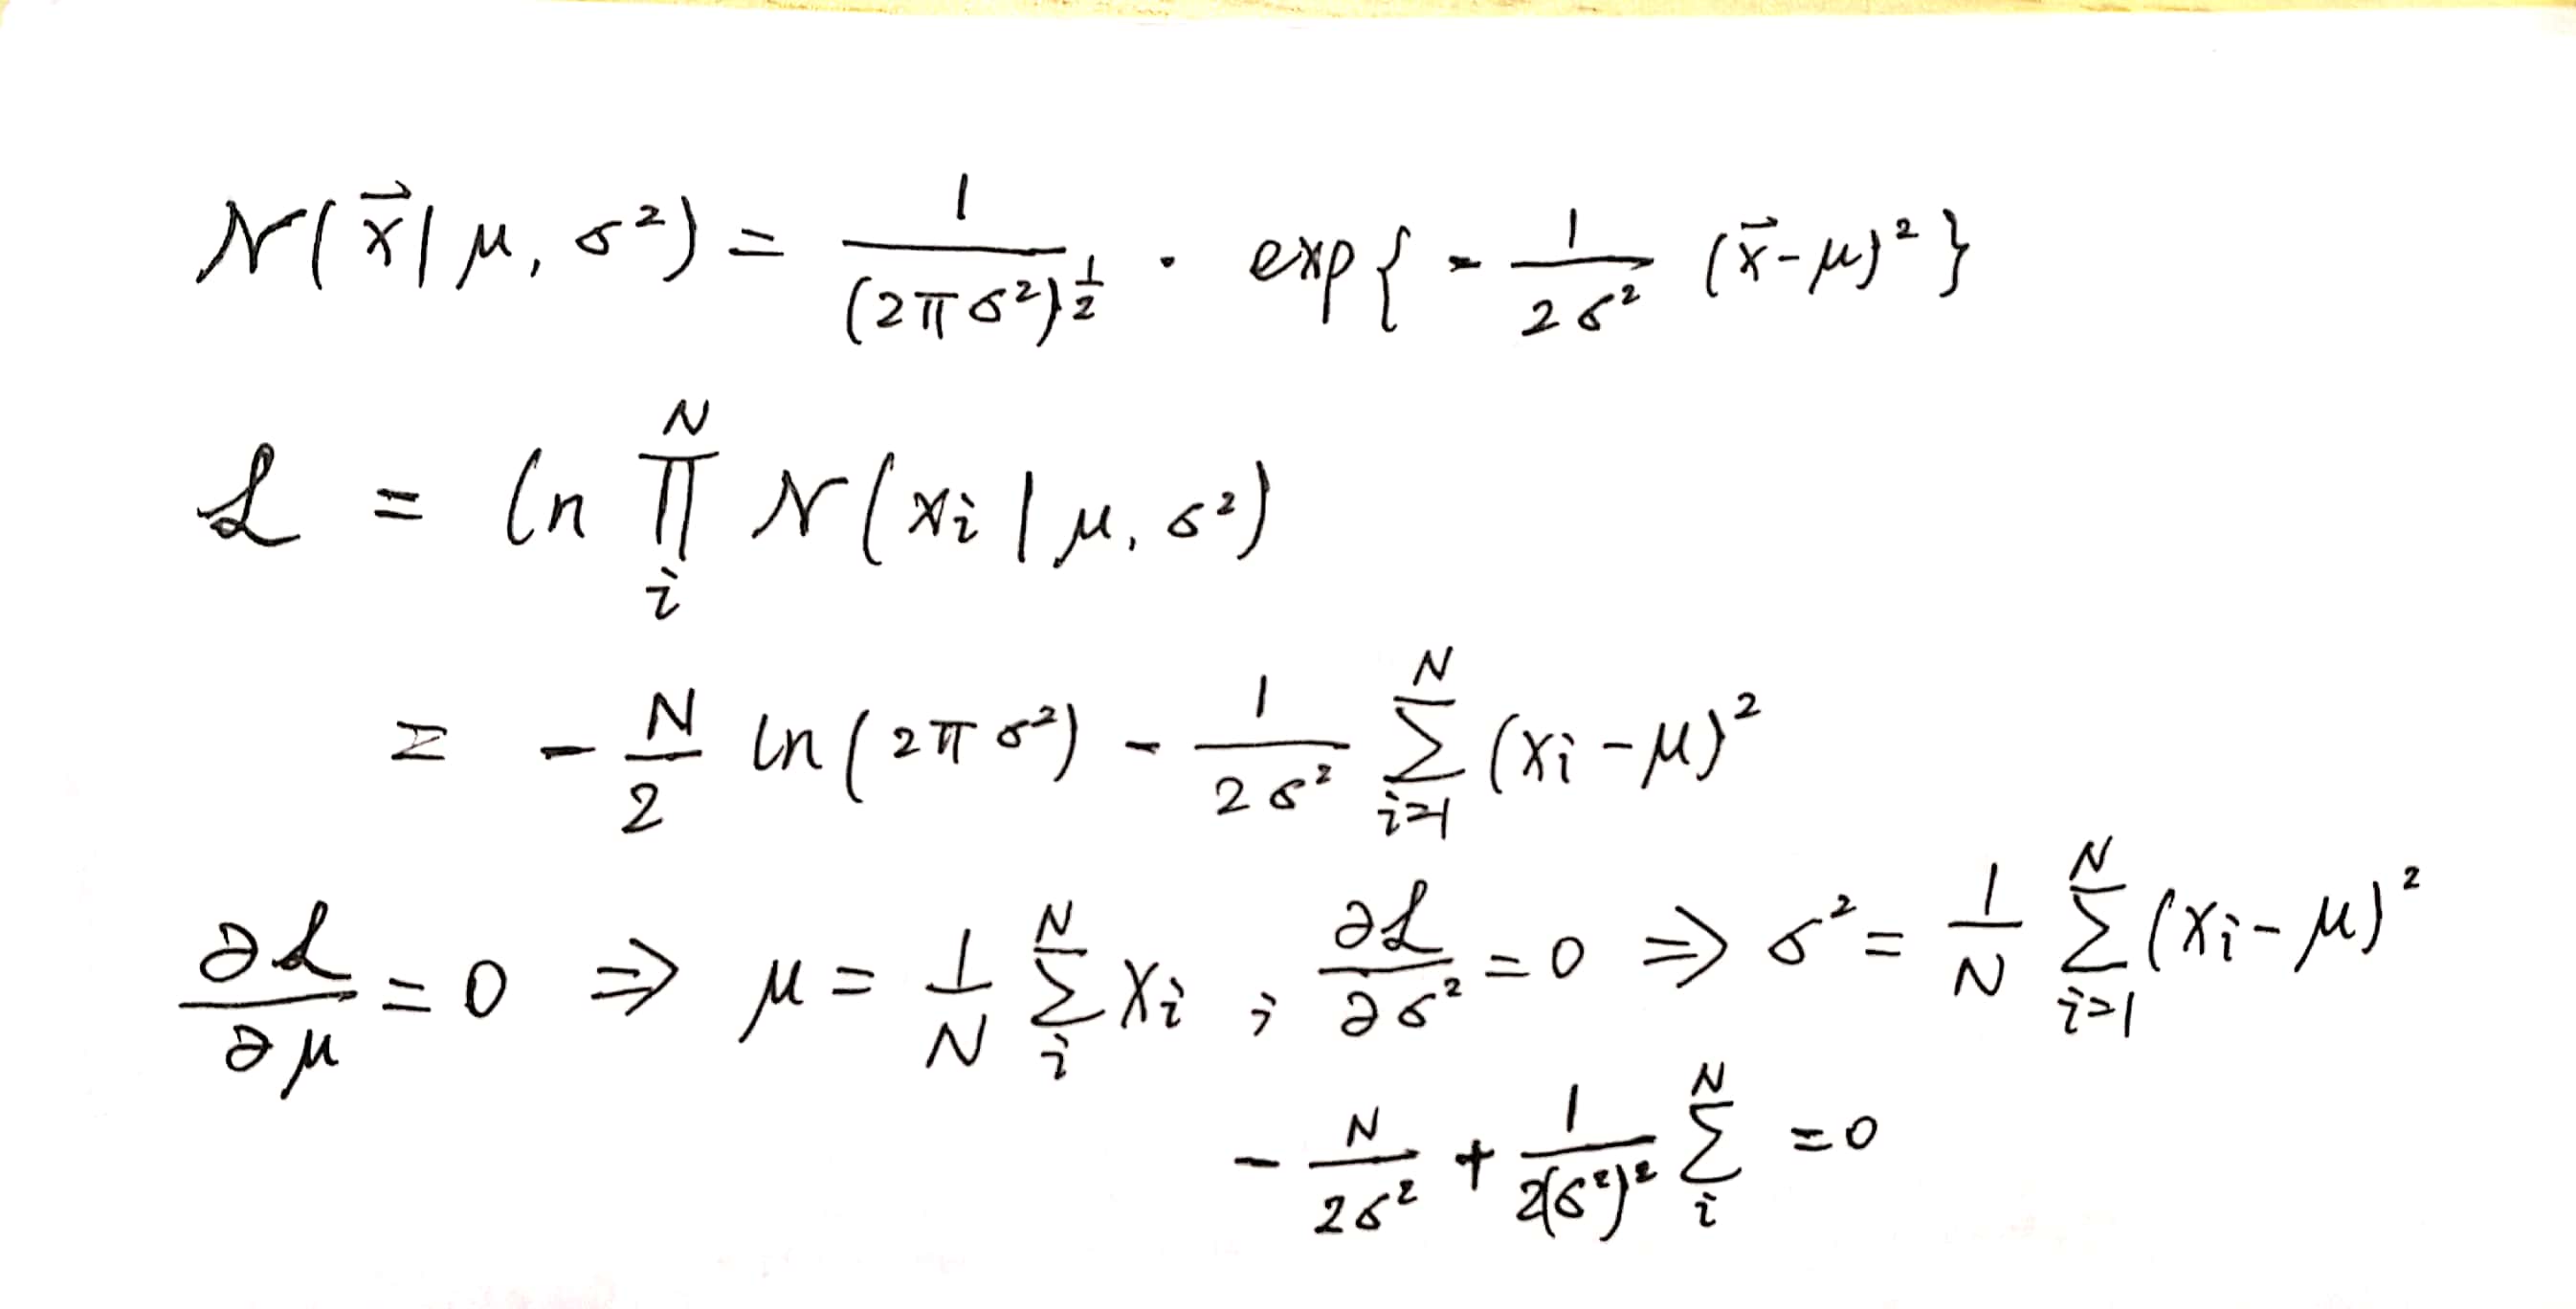 N(x⃗|μ, σ²) = 1/(2πσ²)^(1/2) · exp{ - 1/(2σ²) (x⃗-μ)² }
ℒ = ln ∏_i^N N(x_i | μ, σ²)
= - N/2 ln(2πσ²) - 1/(2σ²) ∑_{i=1}^N (x_i - μ)²
∂ℒ/∂μ = 0 ⇒ μ = 1/N ∑_i^N x_i ; ∂ℒ/∂σ² = 0 ⇒ σ² = 1/N ∑_{i=1}^N (x_i - μ)²
- N/(2σ²) + 1/(2(σ²)²) ∑_i^N = 0